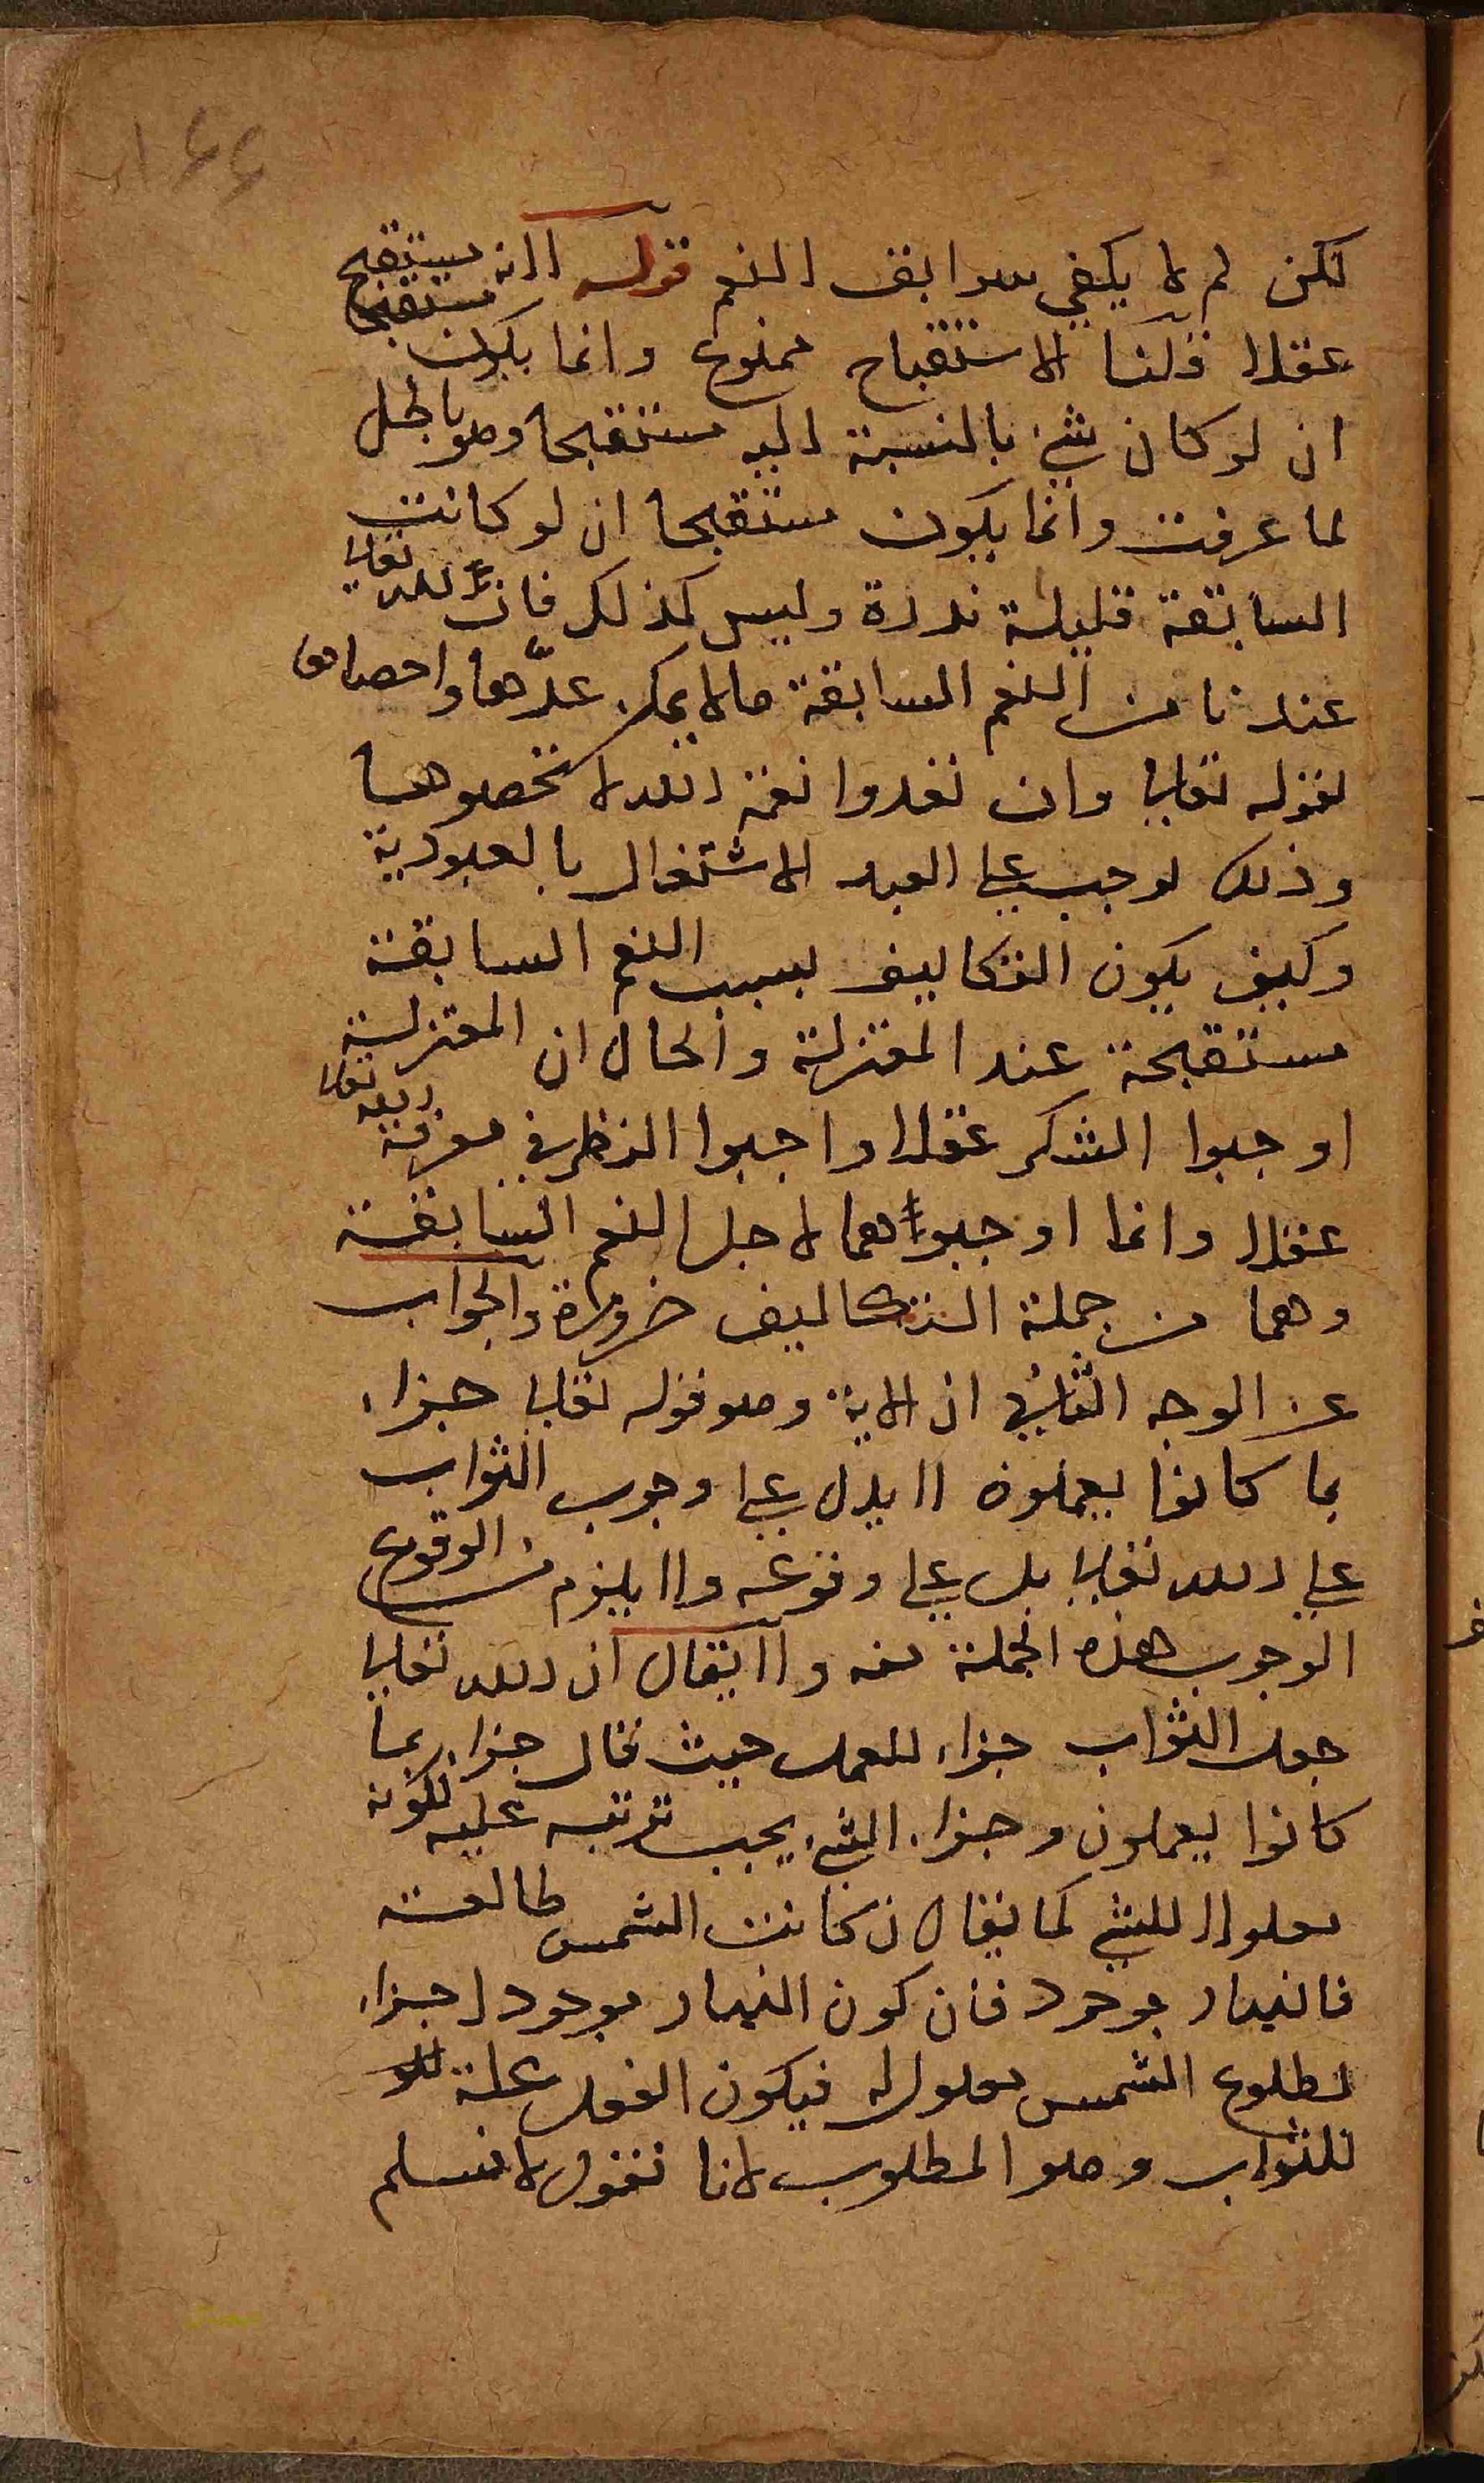 ١٤٤
لكن لم لا يكفي سوابق النعم قوله لانه يستقبح
عقلا قلنا الاستقباح ممنوع وانما يكون مستقبحا
ان لو كان شئ بالنسبة اليه مستقبحا وهو باطل
لما عرفت وانما يكون مستقبحا ان لو كانت
السابقة قليلة نذرة وليس كذلك فان لله تعالى
عندنا من النعم السابقة ما لا يمكن عدّها واحصاؤها
لقوله تعالى وان تعدوا نعمة الله لا تحصوها
وذلك لوجب على العبد الاشتغال بالعبودية
وكيف يكون التكاليف بسبب النعم السابقة
مستقبحة عند المعتزلة والحال ان المعتزلة
اوجبوا الشكر عقلا واجبوا النظر في معرفة الله تعالى
عقلا وانما اوجبواهما لاجل النعم السابقة
وهما من جملة التكاليف ضرورة والجواب
عن الوجه الثاني ان الاية وهو قوله تعالى جزاء
بما كانوا يعملون لا يدل على وجوب الثواب
على الله تعالى بل على وقوعه ولا يلزم من الوقوع
الوجوب هذه الجملة منه ولا يقال ان الله تعالى
جعل الثواب جزاء للعمل حيث قال جزاء بما
كانوا يعملون وجزاء الشئ يجب ترتبه عليه لكونه
معلولا للشئ كما يقال ان كانت الشمس طالعة
فالنهار موجود فان كون النهار موجودا جزاء
لطلوع الشمس معلول له فيكون الفعل علة
للثواب وهو المطلوب لانا نقول لا نسلم